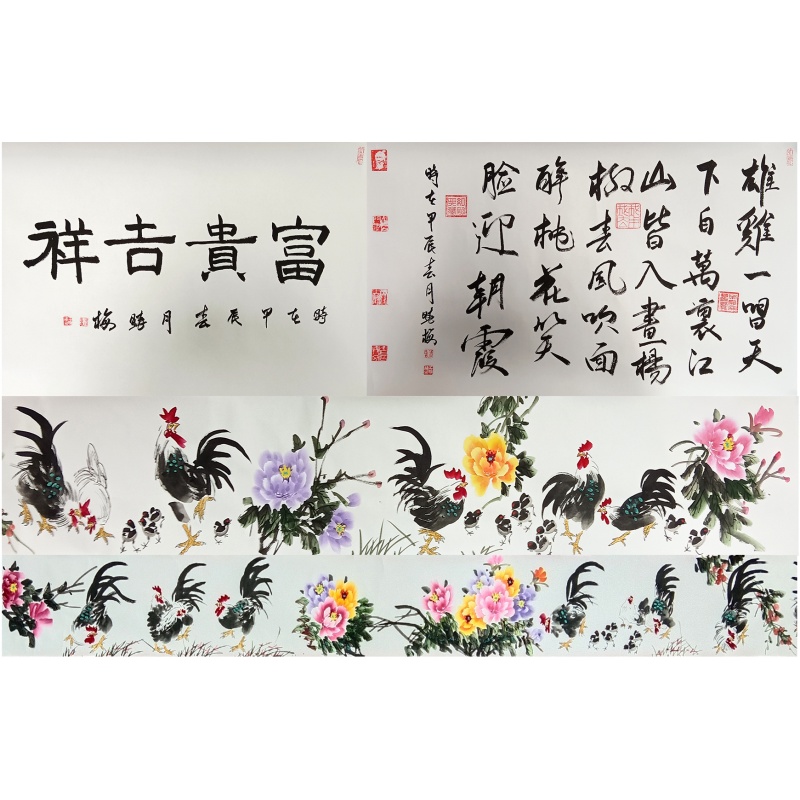 富貴吉祥
時在甲辰春月梅
雄雞一唱天
下白萬裏江
山皆入畫楊
柳春風吹面
醉桃花笑
臉迎朝霞
時在甲辰春月梅